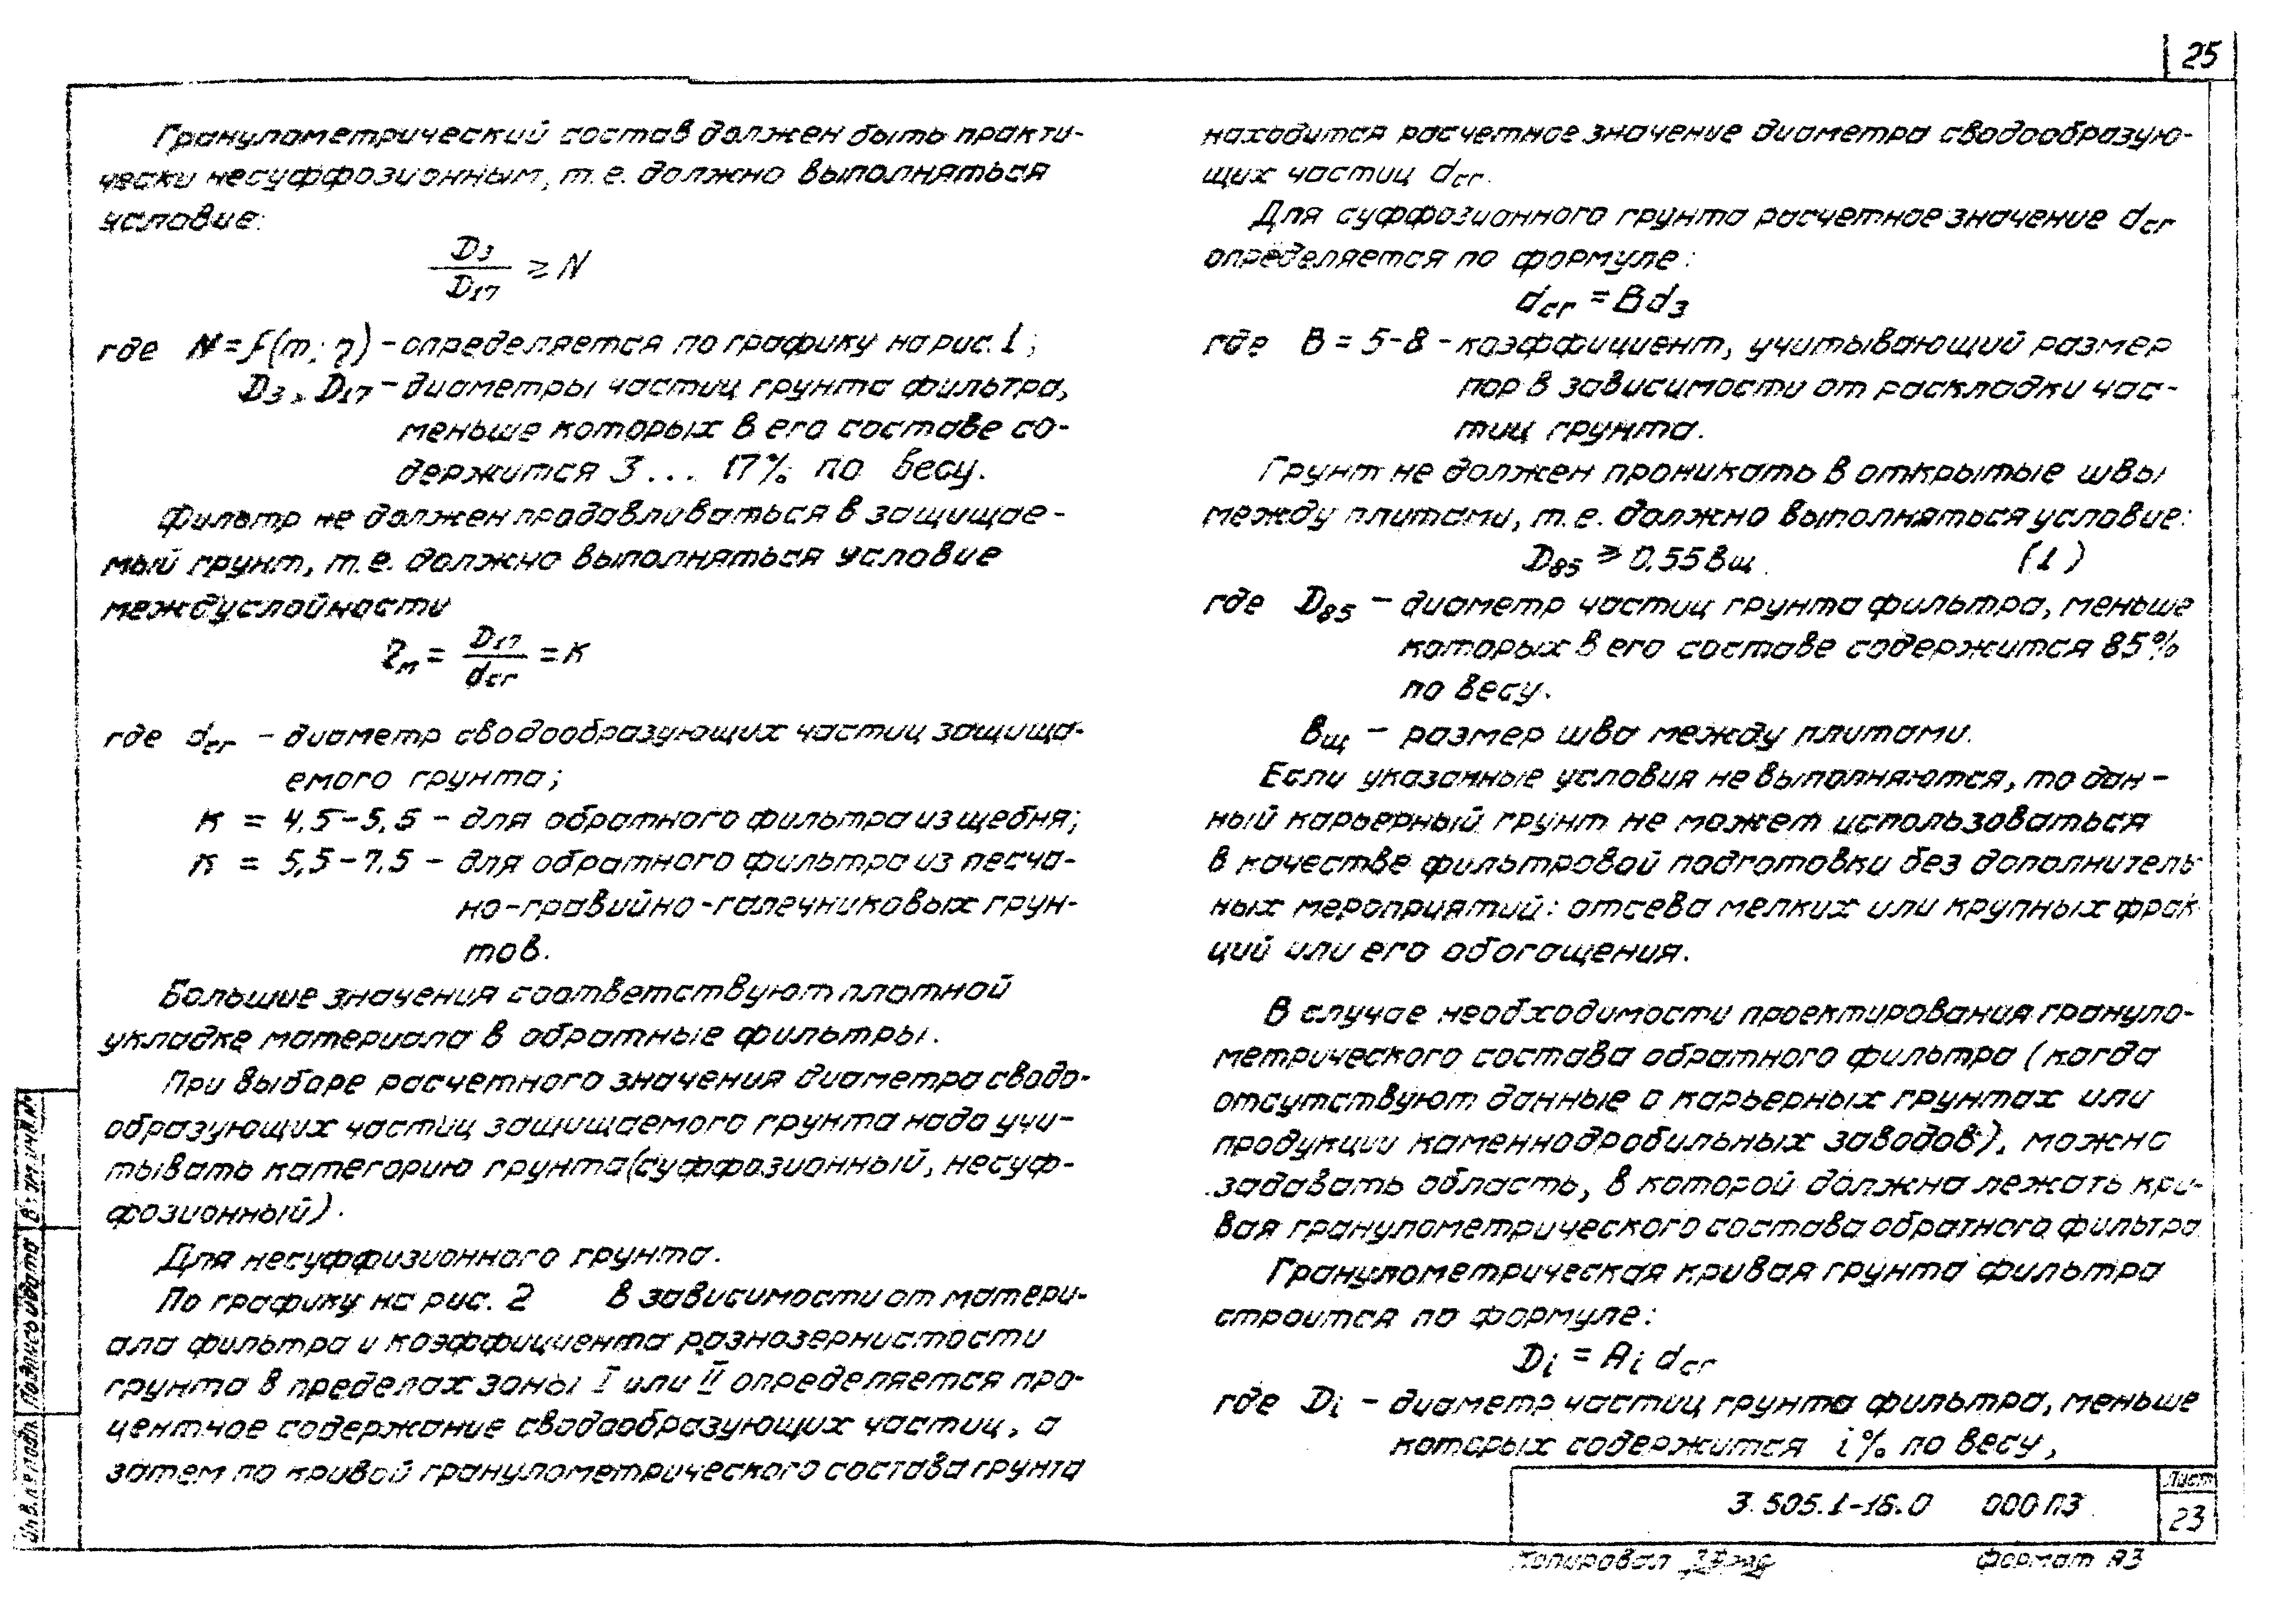 25
Гранулометрический состав должен быть практи-
чески несуффозионным, т.е. должно выполняться
условие:
D3
D17
≥ N
где N = f(m; η) - определяется по графику на рис. 1;
D3, D17 - диаметры частиц грунта фильтра,
меньше которых в его составе со-
держится 3 ... 17% по весу.
Фильтр не должен продавливаться в защищае-
мый грунт, т.е. должно выполняться условие
междуслойности
ηм = D17 / dсг = К
где dсг - диаметр сводообразующих частиц защища-
емого грунта;
К = 4,5-5,5 - для обратного фильтра из щебня;
К = 5,5-7,5 - для обратного фильтра из песча-
но-гравийно-галечниковых грун-
тов.
Большие значения соответствуют плотной
укладке материала в обратные фильтры.
При выборе расчетного значения диаметра сводо-
образующих частиц защищаемого грунта надо учи-
тывать категорию грунта (суффозионный, несуф-
фозионный).
Для несуффизионного грунта.
По графику на рис. 2 в зависимости от матери-
ала фильтра и коэффициента разнозернистости
грунта в пределах зоны I или II определяется про-
центное содержание сводообразующих частиц, а
затем по кривой гранулометрического состава грунта
находится расчетное значение диаметра сводообразую-
щих частиц dсг.
Для суффозионного грунта расчетное значение dсг
определяется по формуле:
dсг = B d3
где B = 5-8 - коэффициент, учитывающий размер
пор в зависимости от раскладки час-
тиц грунта.
Грунт не должен проникать в открытые швы
между плитами, т.е. должно выполняться условие:
D85 ≥ 0,55 вщ. (1)
где D85 - диаметр частиц грунта фильтра, меньше
которых в его составе содержится 85%
по весу.
вщ - размер шва между плитами.
Если указанные условия не выполняются, то дан-
ный карьерный грунт не может использоваться
в качестве фильтровой подготовки без дополнитель-
ных мероприятий: отсева мелких или крупных фрак-
ций или его обогащения.
В случае необходимости проектирования грануло-
метрического состава обратного фильтра (когда
отсутствуют данные о карьерных грунтах или
продукции каменнодробильных заводов), можно
задавать область, в которой должна лежать кри-
вая гранулометрического состава обратного фильтра
Гранулометрическая кривая грунта фильтра
строится по формуле:
Di = Ai dсг
где Di - диаметр частиц грунта фильтра, меньше
которых содержится i% по весу,
3.505.1-16.0 000 ПЗ
Лист
23
Копировал
Формат А3
Инв.№ подл.
Подпись и дата
Взам.инв.№